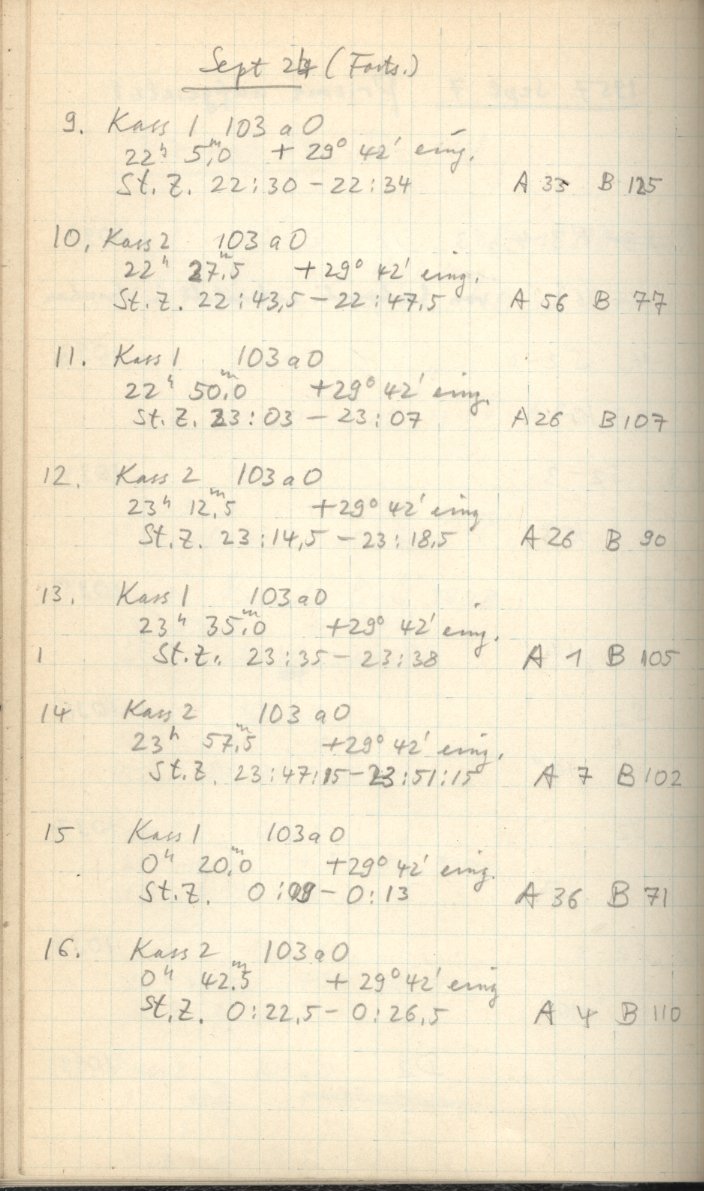 Sept 24 (Forts.)
9. Kass 1 103aO
22ʰ 5ᵐ,0 + 29° 42' eing.
St. Z. 22:30 – 22:34 A 33 B 125
10. Kass 2 103aO
22ʰ 27ᵐ,5 + 29° 42' eing.
St. Z. 22:43,5 – 22:47,5 A 56 B 77
11. Kass 1 103aO
22ʰ 50ᵐ,0 + 29° 42' eing.
St. Z. 23:03 – 23:07 A 26 B 107
12. Kass 2 103aO
23ʰ 12ᵐ,5 + 29° 42' eing
St. Z. 23:14,5 – 23:18,5 A 26 B 90
13. Kass 1 103aO
23ʰ 35ᵐ,0 + 29° 42' eing.
1 St. Z. 23:35 – 23:38 A 1 B 105
14 Kass 2 103aO
23ʰ 57ᵐ,5 + 29° 42' eing.
St. Z. 23:47:15 – 23:51:15 A 7 B 102
15 Kass 1 103aO
0ʰ 20ᵐ,0 + 29° 42' eing.
St. Z. – 0:13 A 36 B 71
16. Kass 2 103aO
0ʰ 42ᵐ,5 + 29° 42' eing
St. Z. 0:22,5 – 0:26,5 A 4 B 110